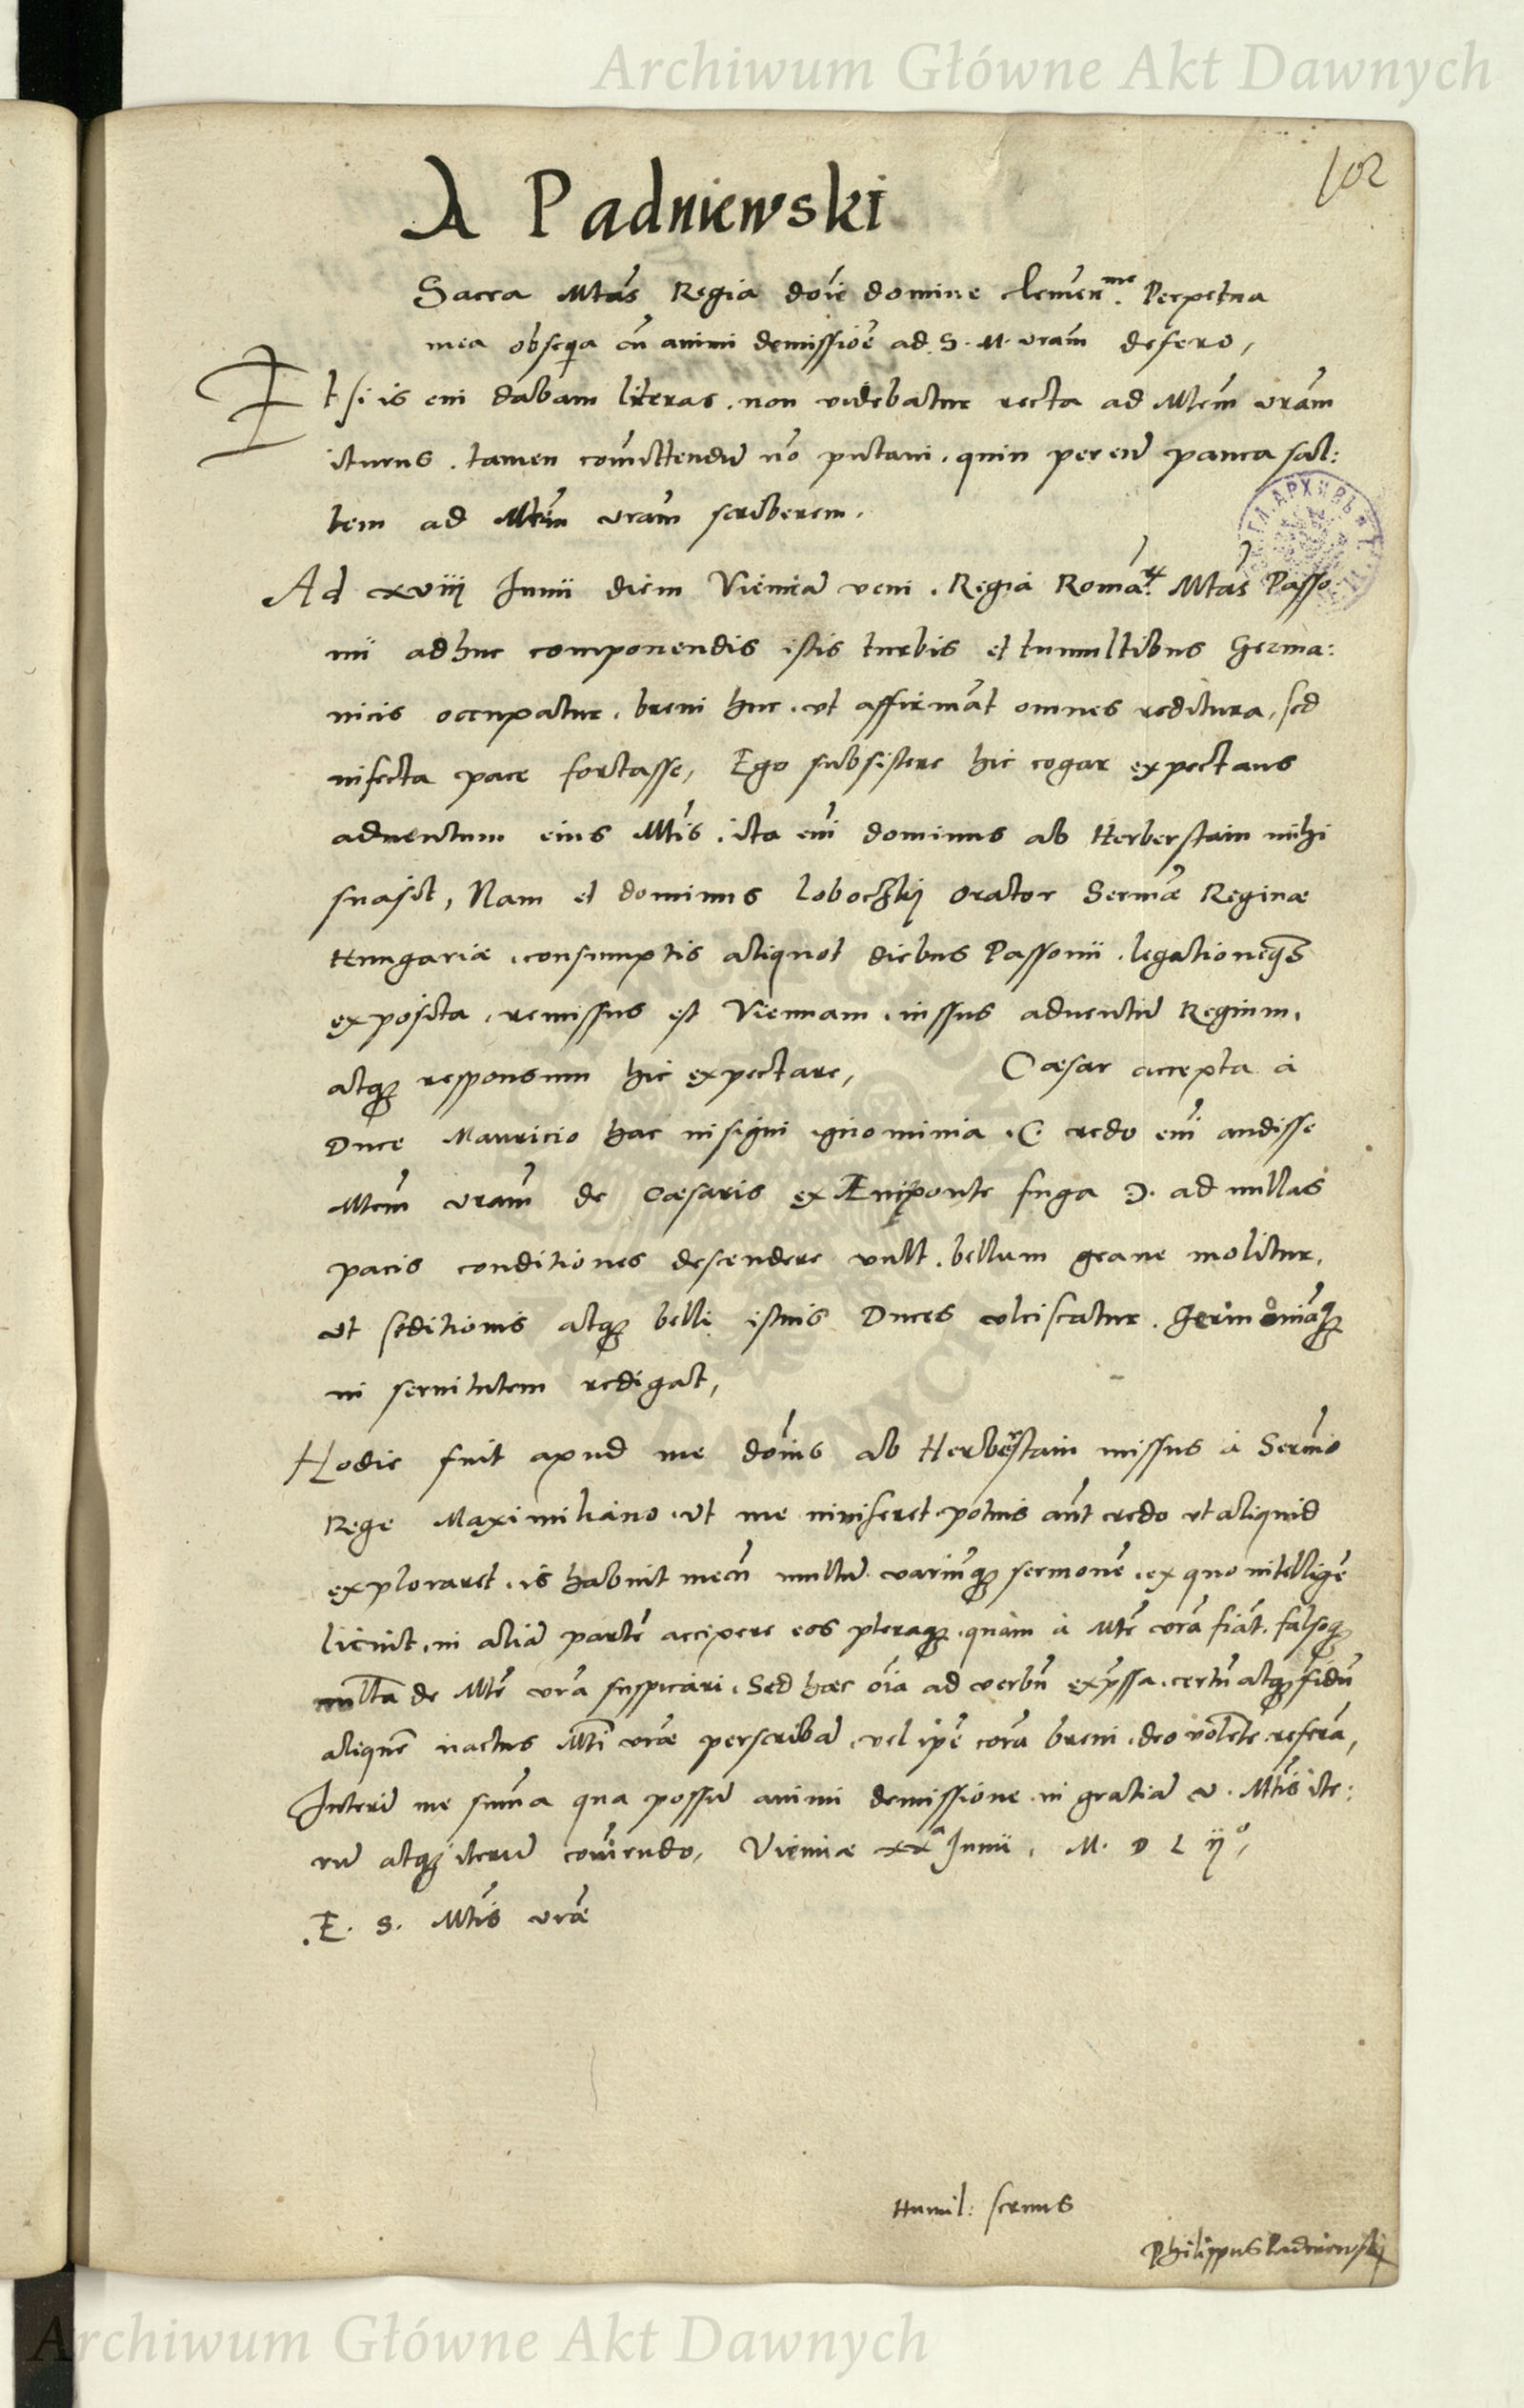 Archiwum Główne Akt Dawnych
102
A Padniewski
Sacra Mtas Regia doie domine clemenme. Perpetua
mea obseqia cū animi demissiōe ad S. M. vram defero,
Etsi is cui dabam literas. non videbatur recta ad Mtem vram
iturus. tamen comittendū nō putavi. quin per eū pauca sal:
tem ad Mtem vram scriberem.
Ad xviij Junii diem Viennā veni. Regia Roma. Mtas Passo
nii adhuc componendis istis turbis et tumultibus Germa:
nicis occupatur. breui huc. ut affirmāt omnes reditura, sed
infecta pace fortasse, Ego subsistere hic cogar expectans
aduentum eius Mtis. ita eni dominus ab Herberstain mihi
suasit, Nam et dominus Loboczkij orator Sermæ Reginæ
Hungariæ. consumptis aliquot diebus Passonii. legationeqz
exposita, remissus est Viennam. iussus aduentū Regium.
atqz responsum hic expectare, Cæsar accepta à
Duce Mauricio hac insigni ignominia. C. credo eni audisse
Mtem vram de Cæsaris ex Æniponte fuga Ɔ. ad nullas
pacis conditiones descendere vult. bellum graue molitur.
ut seditionis atqz belli istius Duces ulciscatur. Germaniāqz
in seruitutem redigat,
Hodie fuit apud me doīnus ab Herberstain missus à Sermo
Rege Maximiliano. ut me inviseret. potius aūt credo ut aliquid
exploraret. is habuit mecū multū variūqz sermonē. ex quo intelligē
licuit. in aliā partē accipere eos pleraqz. quàm à Mte vra fiāt. falsoqz
multa de Mte vra suspicari. Sed hæc oīa ad verbū exp̄ssa. certū atqz fidū
aliquē nactus Mti vræ perscribā. vel ip̄e corā breui. deo volēte. referā,
Interū me sum̄a qua possū animi demissione in gratiā v. Mtis ite:
rū atqz iterū com̄endo, Viennæ xxa Junii. M. D L ijo,
E. S. Mtis vræ
Humil: seruus
Philippus Padniewskij
Archiwum Główne Akt Dawnych